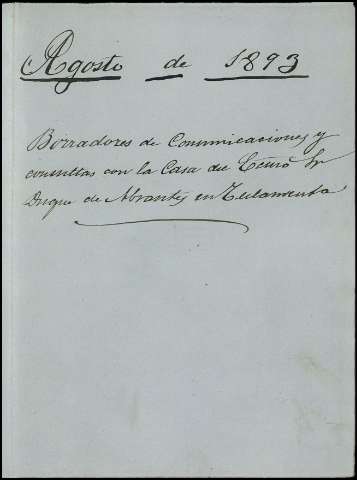 Agosto de 1893
Borradores de Comunicaciones y
consultas con la Casa del Excmo Sr
Duque de Abrantes en Testamenta